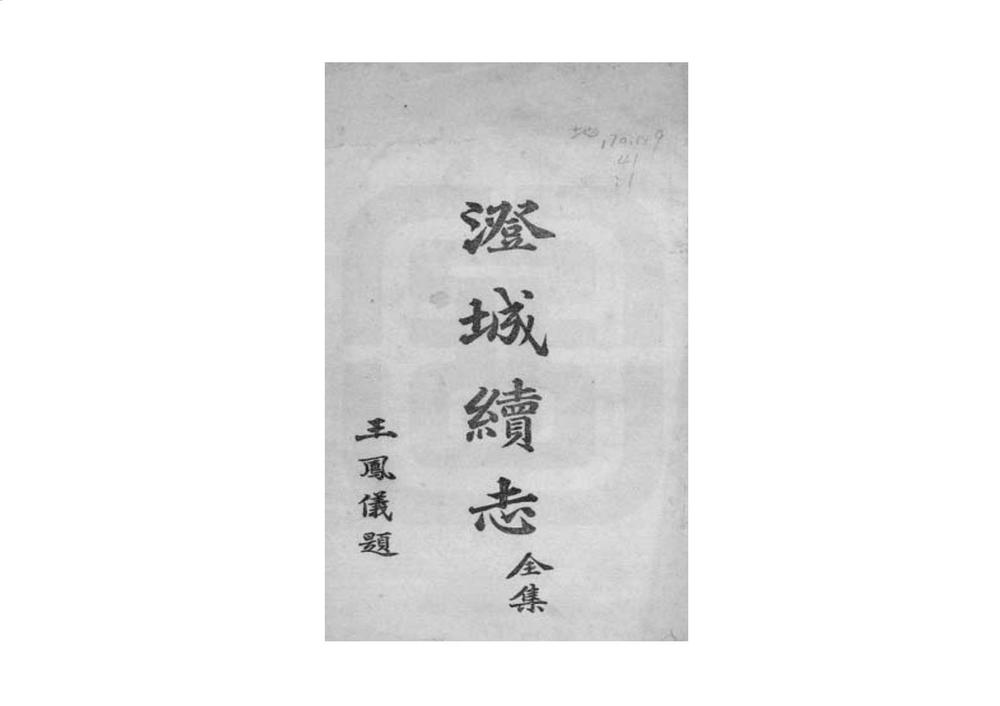 澄城續志
全集
王鳳儀題
地,170.149
41
:1